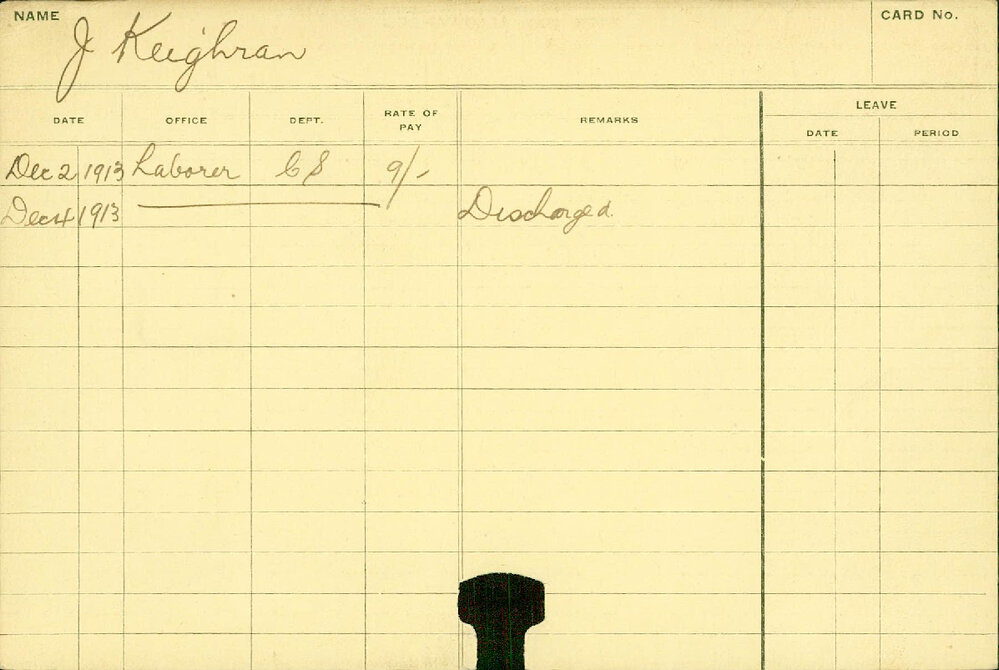 NAME
CARD No.
J Keighran
LEAVE
DATE OFFICE DEPT. RATE OF PAY REMARKS DATE PERIOD
Dec 2 1913 Laborer CS 9/-
Dec 4 1913 Discharged.